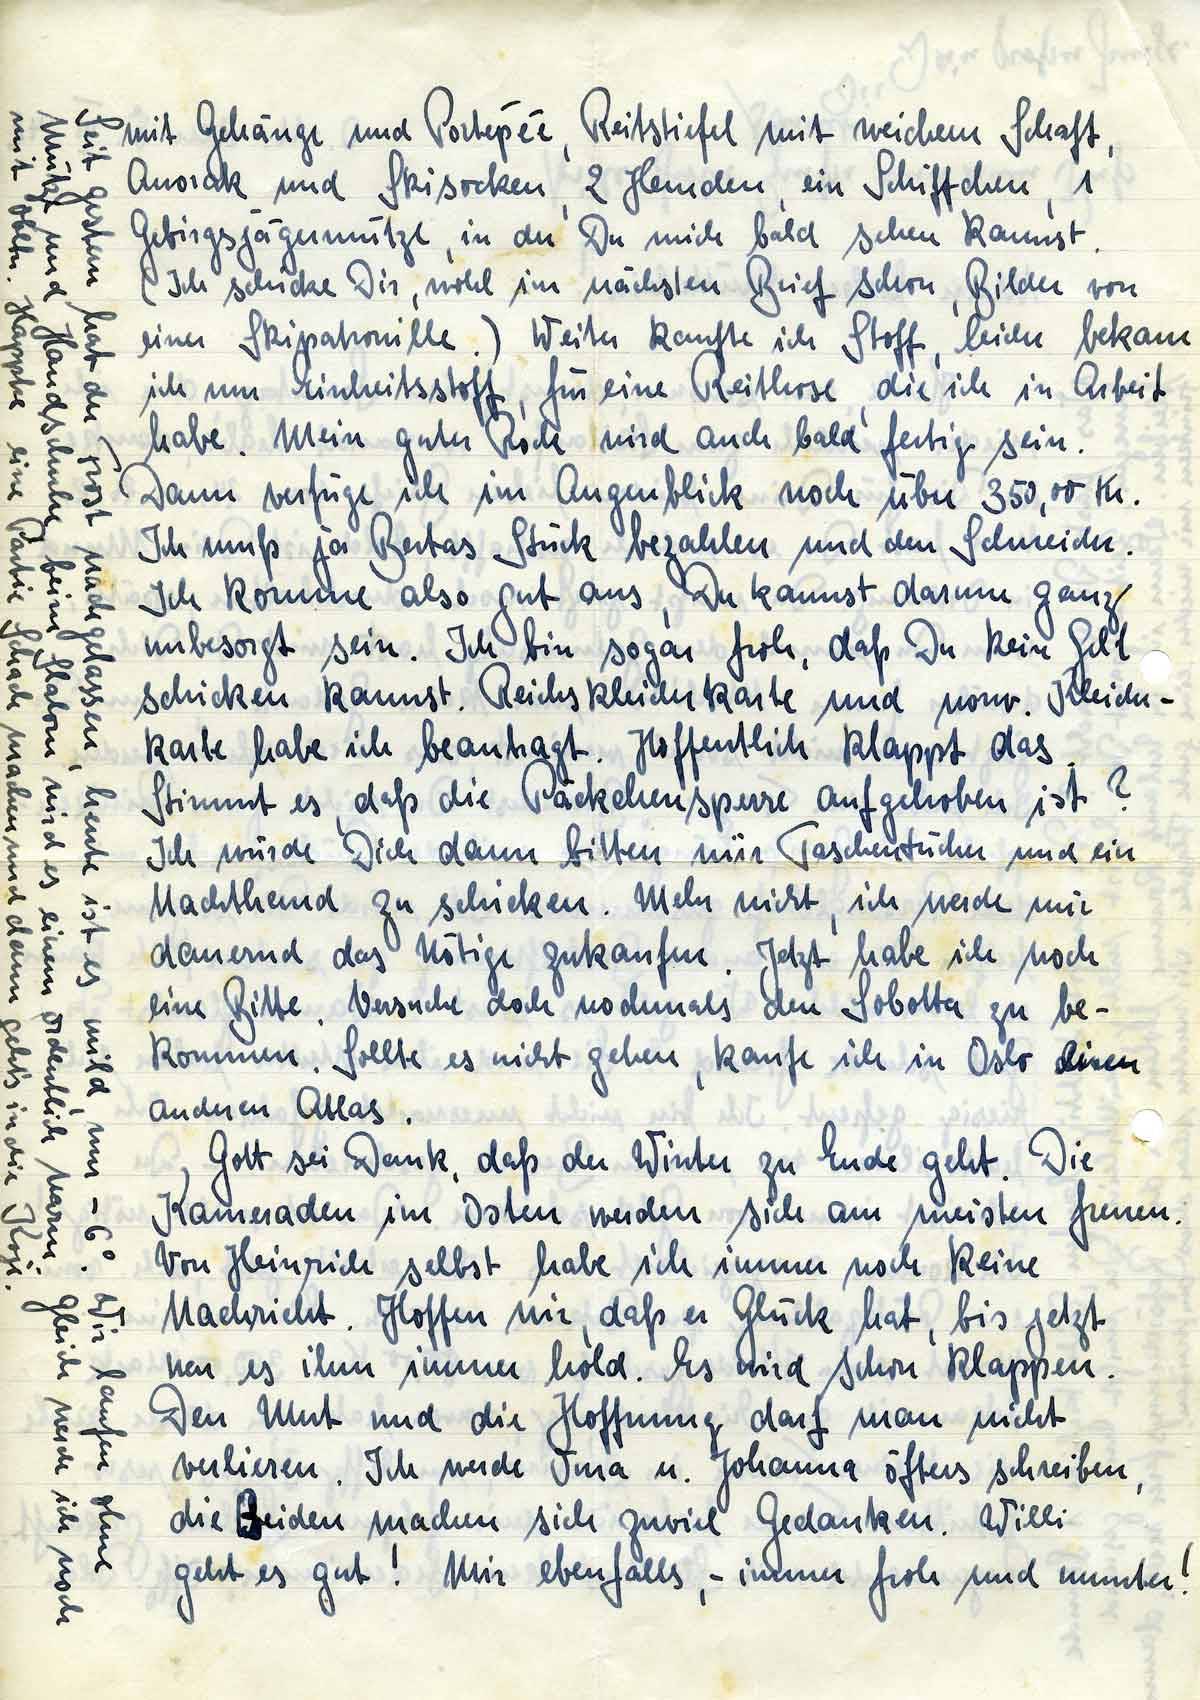 mit Gehänge und Portepée, Reitstiefel mit weichem Schaft,
Anorak und Skisocken, 2 Hemden, ein Schiffchen, 1
Gebirgsjägermütze, in der Du mich bald sehen kannst.
(Ich schicke Dir, wohl im nächsten Brief schon, Bilder von
einer Skipatrouille.) Weiter kaufte ich Stoff, leider bekam
ich nur Einheitsstoff, für eine Reithose, die ich in Arbeit
habe. Mein guter Rock wird auch bald fertig sein.
Dann verfüge ich im Augenblick noch über 350,00 Kr.
Ich muß ja Bertas Stück bezahlen und den Schneider.
Ich komme also gut aus, Du kannst darum ganz
unbesorgt sein. Ich bin sogar froh, daß Du kein Geld
schicken kannst. Reichskleiderkarte und norw. Kleider-
karte habe ich beantragt. Hoffentlich klappt das.
Stimmt es, daß die Päckchensperre aufgehoben ist?
Ich würde Dich dann bitten mir Taschentücher und ein
Nachthemd zu schicken. Mehr nicht, ich werde mir
dauernd das Nötige zukaufen. Jetzt habe ich noch
eine Bitte. Versuche doch nochmals den Sobotta zu be-
kommen. Sollte es nicht gehen, kaufe ich in Oslo einen
anderen Atlas.
Gott sei Dank, daß der Winter zu Ende geht. Die
Kameraden im Osten werden sich am meisten freuen.
Von Heinrich selbst habe ich immer noch keine
Nachricht. Hoffen wir, daß er Glück hat, bis jetzt
war es ihm immer hold. Es wird schon klappen.
Den Mut und die Hoffnung darf man nicht
verlieren. Ich werde Oma u. Johanna öfters schreiben,
die Beiden machen sich zuviel Gedanken. Willi
geht es gut! Mir ebenfalls, - immer froh und munter!
Seit gestern hat der Frost nachgelassen, heute ist es mild, nur -6°. Wir laufen ohne
Mütze und Handschuhe, beim Slalom wird es einem ordentlich warm. Gleich werde ich noch
mit Obltn. Happke eine Partie Schach machen und dann geht's in die Koje.